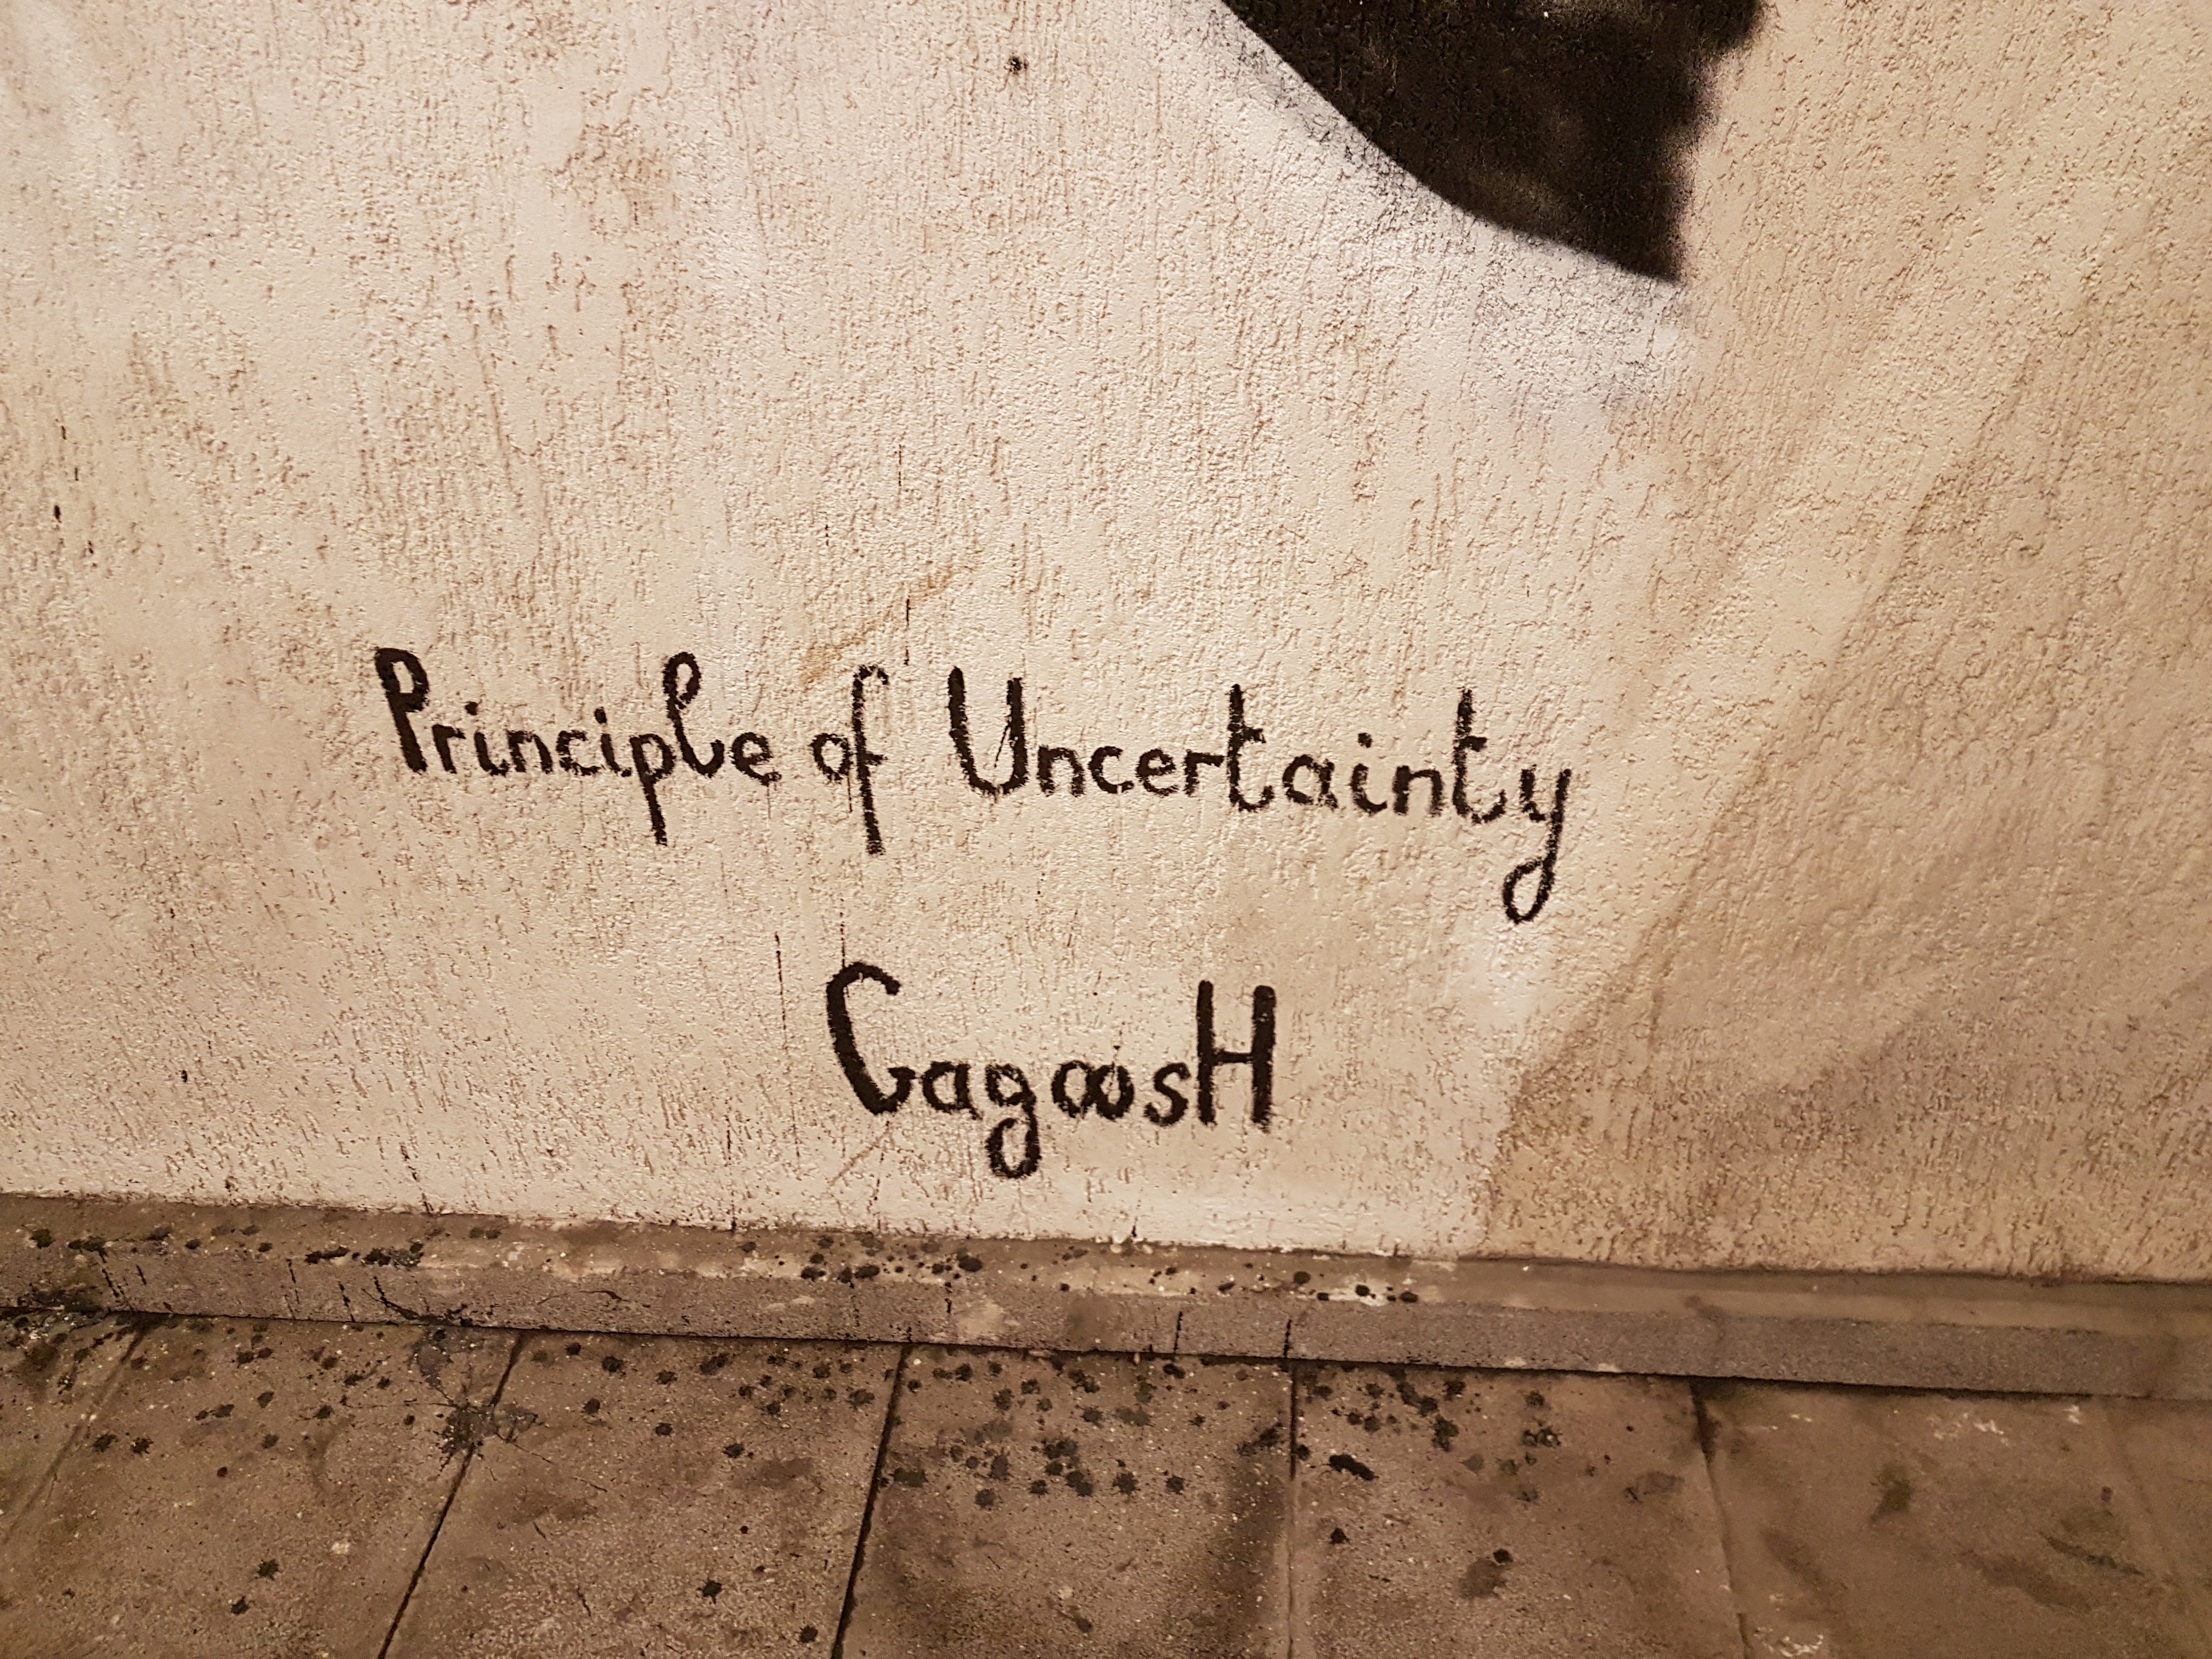 Principle of Uncertainty
GagoosH